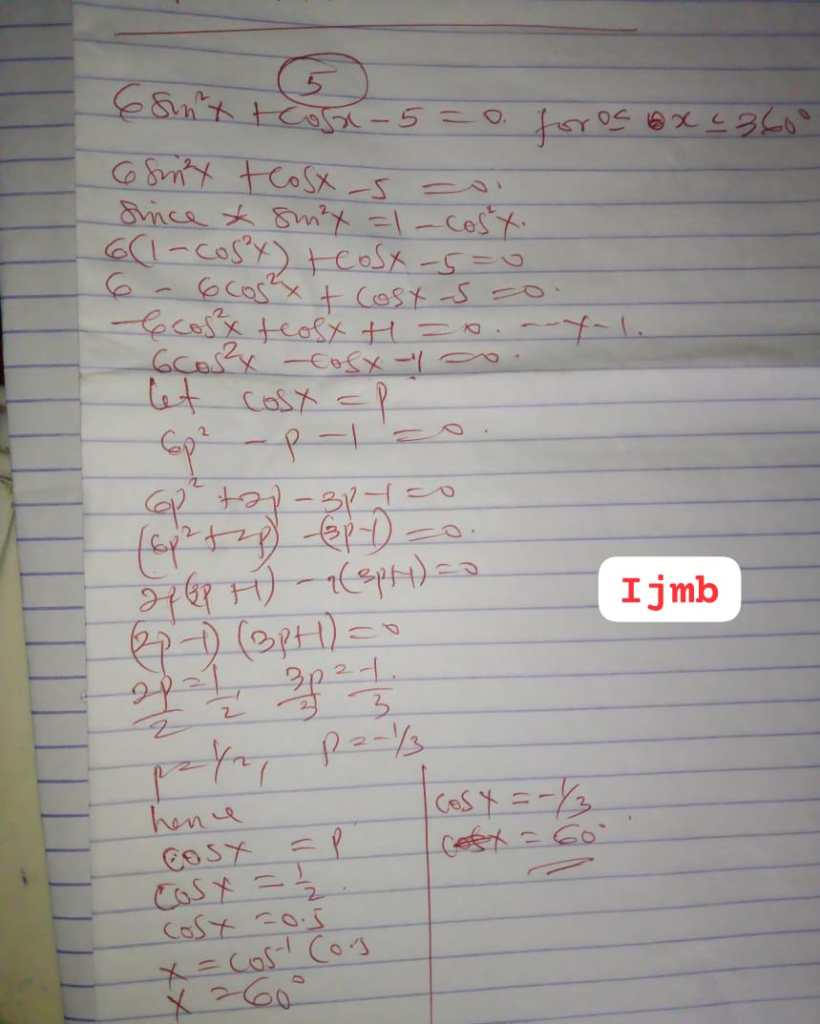 5
6 Sin²x + Cosx - 5 = 0. for 0≤ x ≤ 360°
6 Sin²x + Cosx - 5 = 0.
Since Sin²x = 1 - Cos²x.
6(1 - cos²x) + cosx - 5 = 0
6 - 6cos²x + cosx - 5 = 0.
-6cos²x + cosx + 1 = 0. --- x - 1.
6cos²x - cosx - 1 = 0.
let cosx = p
6p² - p - 1 = 0.
6p² + 2p - 3p - 1 = 0
(6p² + 2p) - (3p - 1) = 0.
2p(3p + 1) - 1(3p + 1) = 0
(2p - 1) (3p + 1) = 0
2p/2 = 1/2, 3p/3 = -1/3
p = 1/2, p = -1/3
hence
cosx = p
cosx = 1/2.
cosx = 0.5
x = cos⁻¹ (0.5
x = 60°
cosx = -1/3
x = 60°
Ijmb